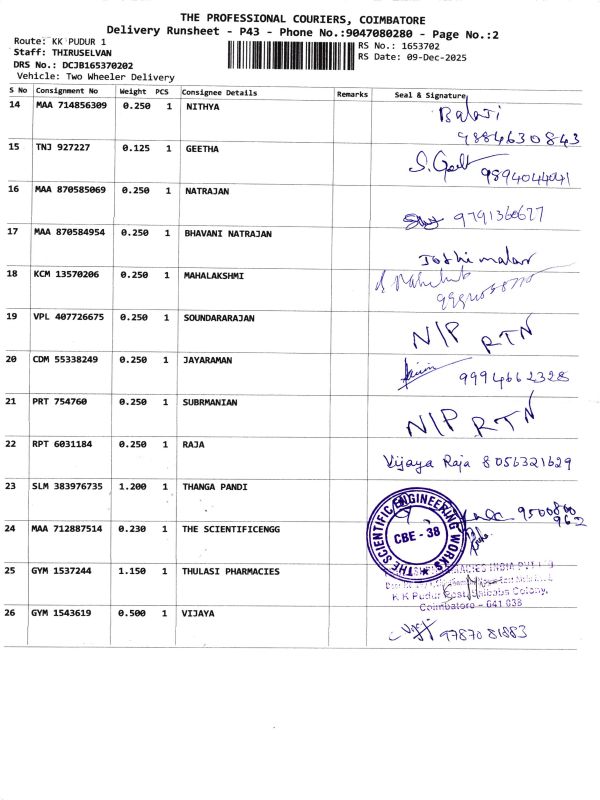 THE PROFESSIONAL COURIERS, COIMBATORE
Delivery Runsheet - P43 - Phone No.:9047080280 - Page No.:2
Route: KK PUDUR 1
Staff: THIRUSELVAN
DRS No.: DCJB165370202
Vehicle: Two Wheeler Delivery
RS No.: 1653702
RS Date: 09-Dec-2025
S No Consignment No Weight PCS Consignee Details Remarks Seal & Signature
14 MAA 714856309 0.250 1 NITHYA Balaji
9884630843
15 TNJ 927227 0.125 1 GEETHA
9894044041
16 MAA 870585069 0.250 1 NATRAJAN 9791360677
17 MAA 870584954 0.250 1 BHAVANI NATRAJAN
18 KCM 13570206 0.250 1 MAHALAKSHMI
19 VPL 407726675 0.250 1 SOUNDARARAJAN N/P RTN
20 CDM 55338249 0.250 1 JAYARAMAN 9994662328
21 PRT 754760 0.250 1 SUBRMANIAN N/P RTN
22 RPT 6031184 0.250 1 RAJA Vijaya Raja 8056321629
23 SLM 383976735 1.200 1 THANGA PANDI 9500800
962
24 MAA 712887514 0.230 1 THE SCIENTIFICENGG
THE SCIENTIFIC ENGINEERING WORKS
CBE - 38
25 GYM 1537244 1.150 1 THULASI PHARMACIES
INDIA PVT
K K Pudur Post, Colony,
Coimbatore - 641 038
26 GYM 1543619 0.500 1 VIJAYA 9787081883